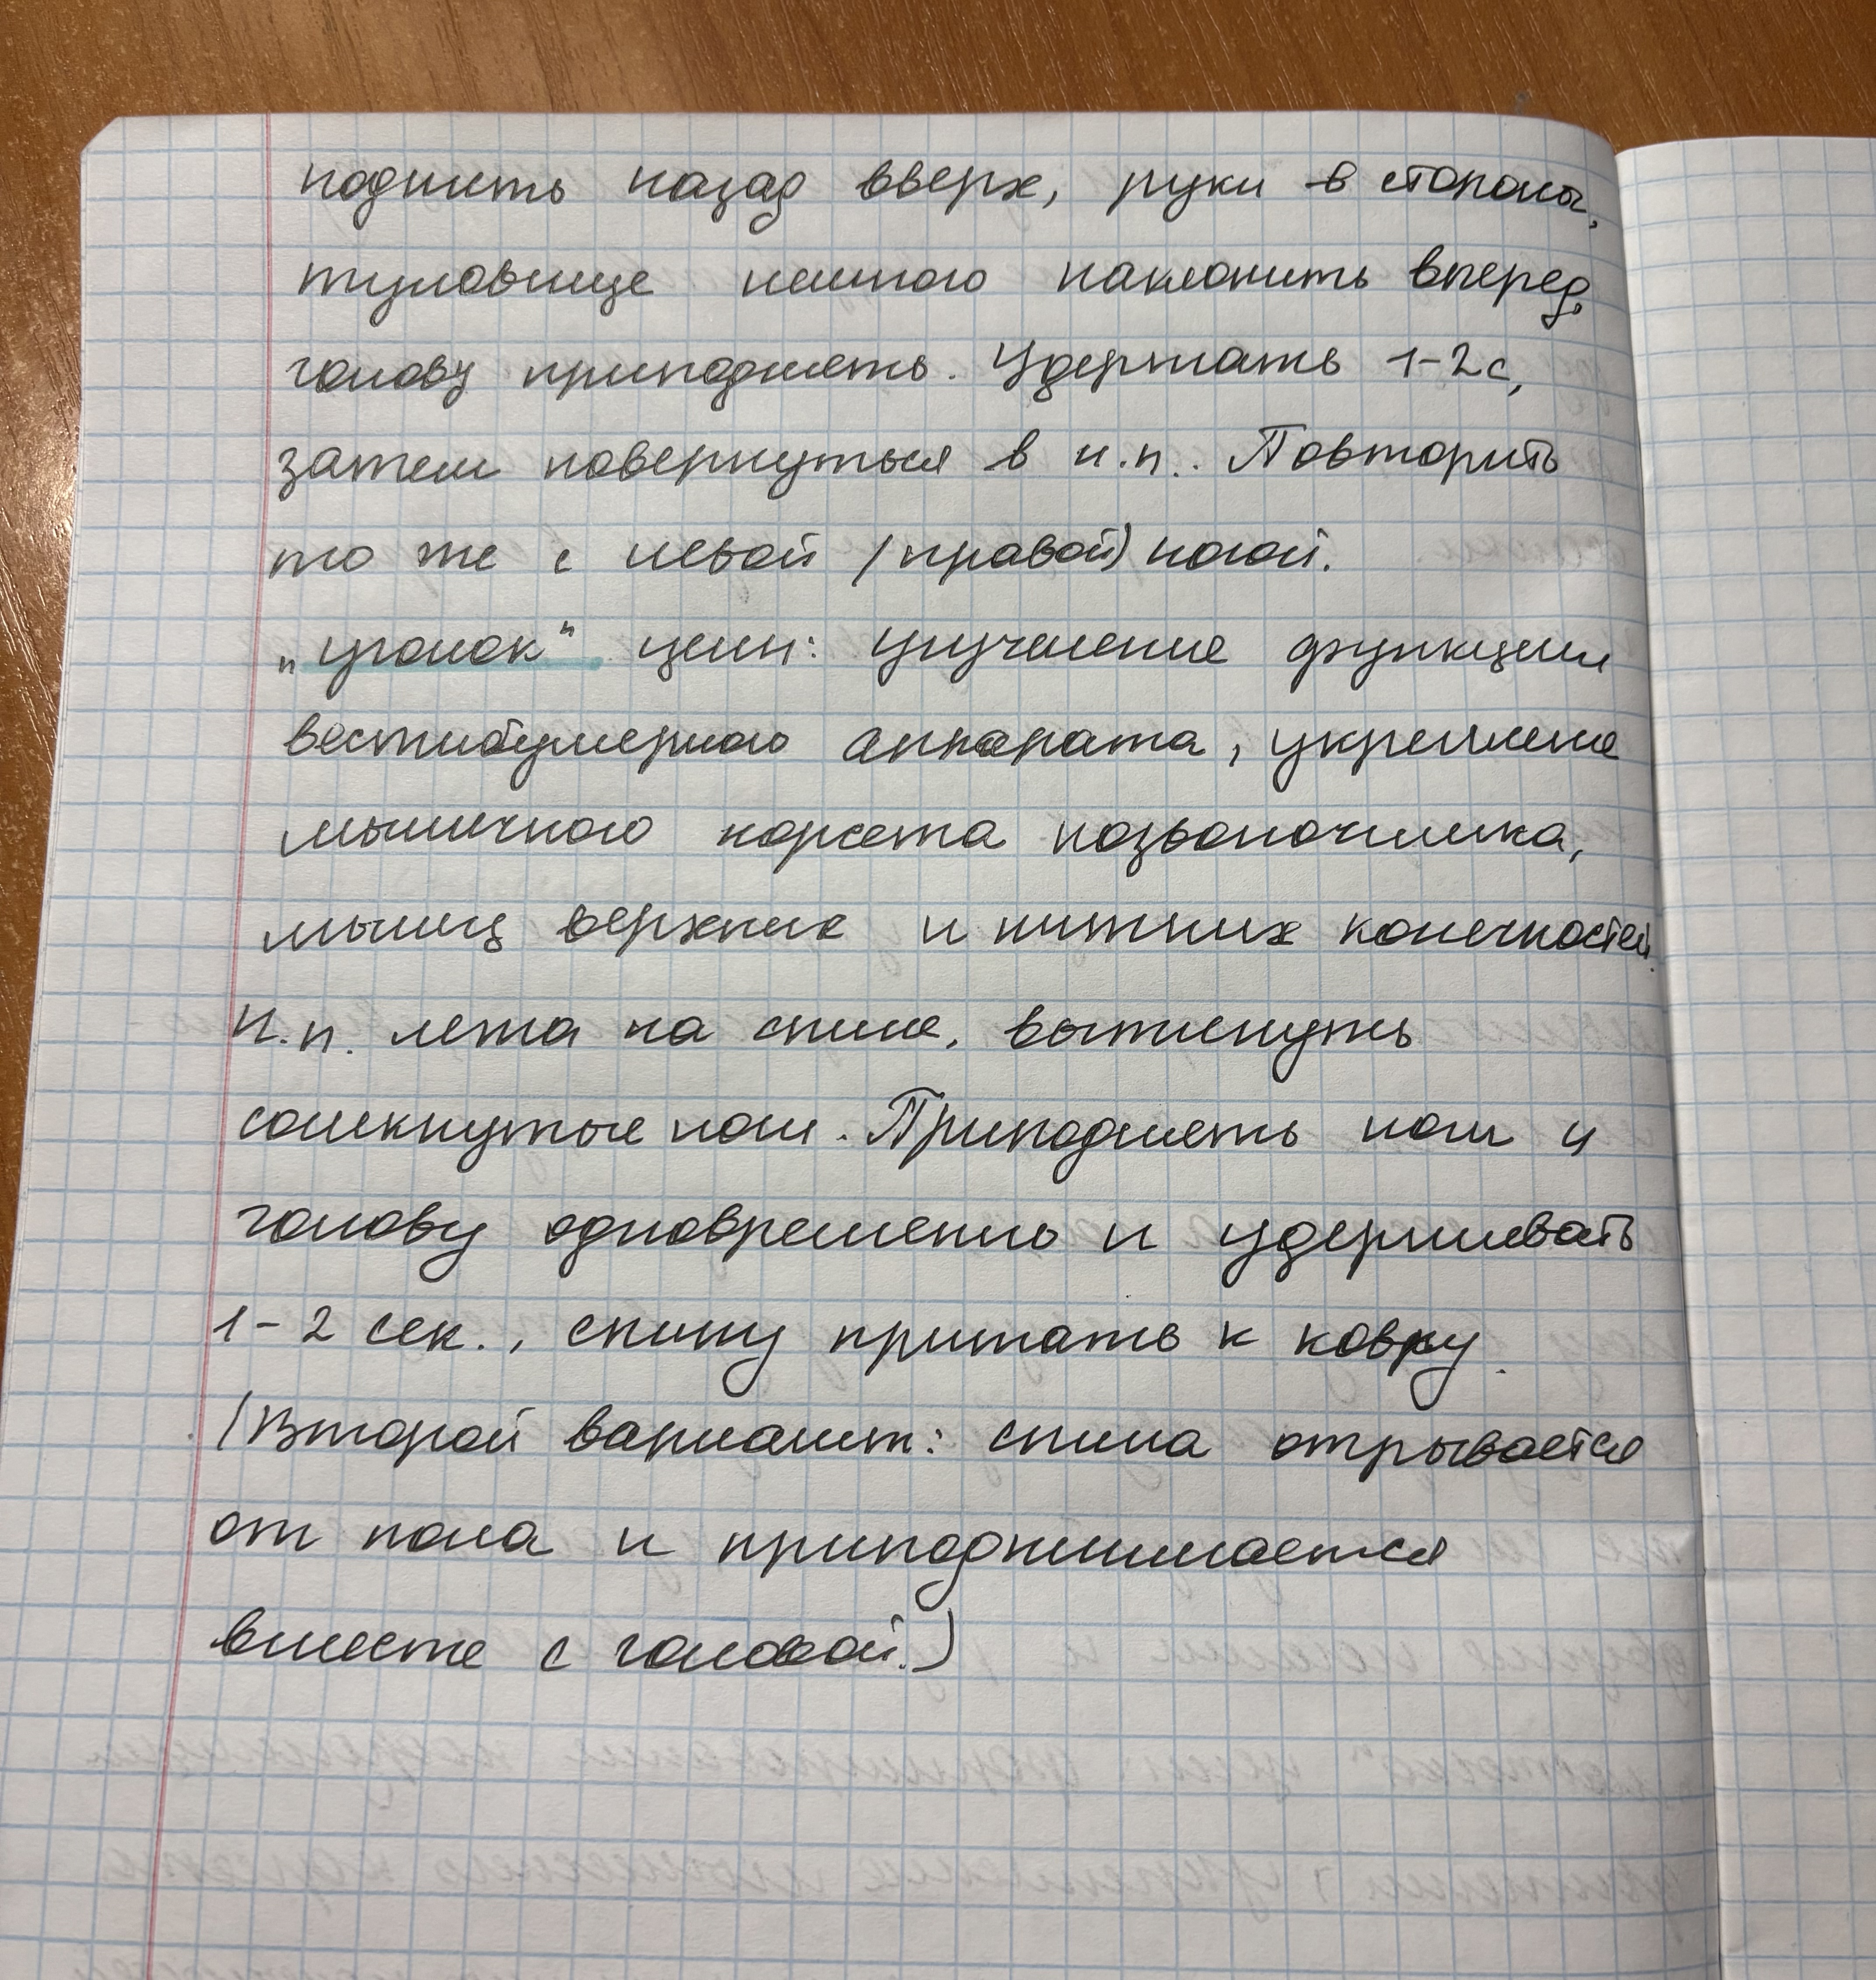 поднять назад вверх, руки в стороны,
туловище немного наклонить вперед,
голову приподнять. Удержать 1-2с,
затем повернуться в и.п.. Повторить
то же с левой (правой) ногой.
„уголок“ цели: улучшение функции
вестибулярного аппарата, укрепление
мышечного корсета позвоночника,
мышц верхних и нижних конечностей.
И.п. лежа на спине, вытянуть
сомкнутые ноги. Приподнять ноги и
голову одновременно и удерживать
1-2 сек., спину прижать к ковру.
(Второй вариант: спина отрывается
от пола и приподнимается
вместе с головой.)